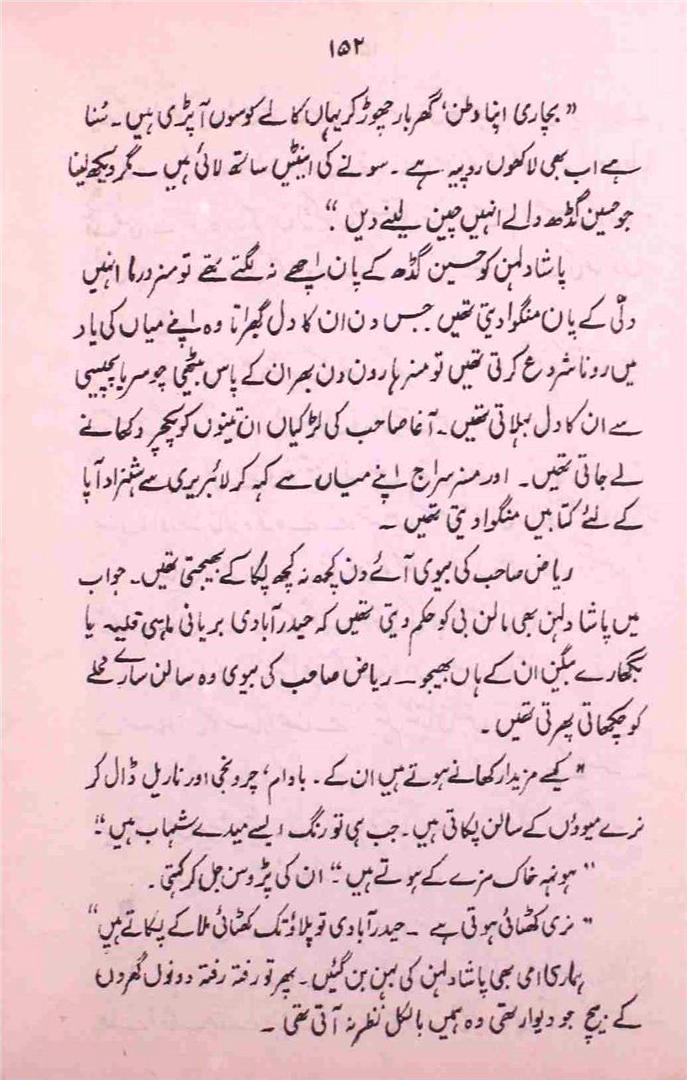 ۱۵۲
”بچاری اپنا وطن، گھر بار چھوڑ کر یہاں کالے کوسوں آپڑی ہیں۔ سُنا
ہے اب بھی لاکھوں روپیہ ہے۔ سونے کی اینٹیں ساتھ لائی ہیں — مگر دیکھ لینا
جو حسین گڈھ والے انہیں چین لینے دیں“
پاشا دلہن کو حسین گڈھ کے پان اچھے نہ لگتے تھے تو مسز درما انہیں
دلّی کے پان منگوا دیتی تھیں جس دن ان کا دل گھبراتا وہ اپنے میاں کی یاد
میں رونا شروع کرتی تھیں تو مسز ہارون دن بھر ان کے پاس بیٹھی چوسر یا پچیسی
سے ان کا دل بہلاتی تھیں۔ آغا صاحب کی لڑکیاں ان تینوں کو پکچر دکھانے
لے جاتی تھیں۔ اور مسز سراج اپنے میاں سے کہہ کر لائبریری سے شہزاد آپا
کے لئے کتابیں منگوا دیتی تھیں —
ریاض صاحب کی بیوی آئے دن کچھ نہ کچھ پکا کے بھیجتی تھیں۔ جواب
میں پاشا دلہن بھی مالن بی کو حکم دیتی تھیں کہ حیدرآبادی بریانی ماہی قلیہ یا
بگھارے بیگن ان کے ہاں بھیجو — ریاض صاحب کی بیوی وہ سالن سارے محلے
کو چکھاتی پھرتی تھیں۔
”کیسے مزیدار کھانے ہوتے ہیں ان کے۔ بادام، چرونجی اور ناریل ڈال کر
نرے میووں کے سالن پکاتی ہیں۔ جب ہی تو رنگ ایسے میدے شہاب ہیں“
”ہونہہ خاک مزے کے ہوتے ہیں“ ان کی پڑوسن جل کر کہتی۔
”نری کھٹائی ہوتی ہے — حیدرآبادی تو پلاؤ تک کھٹائی ملا کے پکاتے ہیں“
ہماری امی بھی پاشا دلہن کی بہن بن گئیں۔ پھر تو رفتہ رفتہ دونوں گھروں
کے بیچ جو دیوار تھی وہ ہمیں بالکل نظر نہ آتی تھی۔